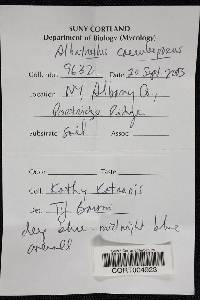 SUNY CORTLAND
Department of Biology (Mycology)
Albatrellus caeruleoporus
Coll. no. 9632 Date 20 Sept 2003
Location NY, Albany Co.,
Ridge
Substrate Soil Assoc
Color Taste
Coll. Kathy
Det. TJ Baroni
deep blue midnight blue
overall
CORT004923